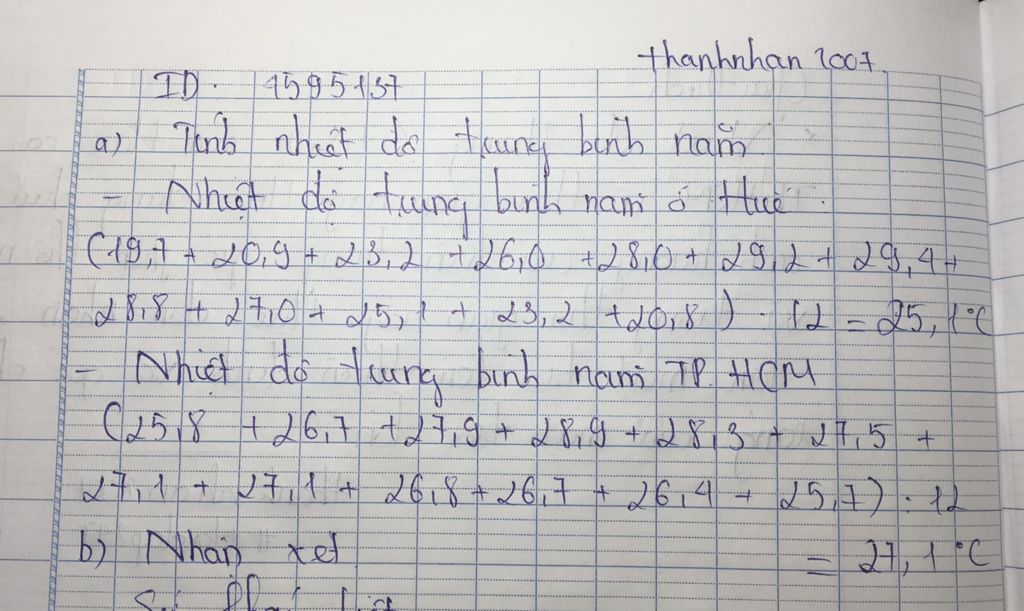 thanhnhan 2007.
ID: 1595137
a) Tính nhiệt độ trung bình năm
- Nhiệt độ trung bình năm ở Huế:
(19,7 + 20,9 + 23,2 + 26,0 + 28,0 + 29,2 + 29,4 +
28,8 + 27,0 + 25,1 + 23,2 + 20,8) : 12 = 25,1°C
- Nhiệt độ trung bình năm TP. HCM
(25,8 + 26,7 + 27,9 + 28,9 + 28,3 + 27,5 +
27,1 + 27,1 + 26,8 + 26,7 + 26,4 + 25,7) : 12
b) Nhận xét
= 27,1°C